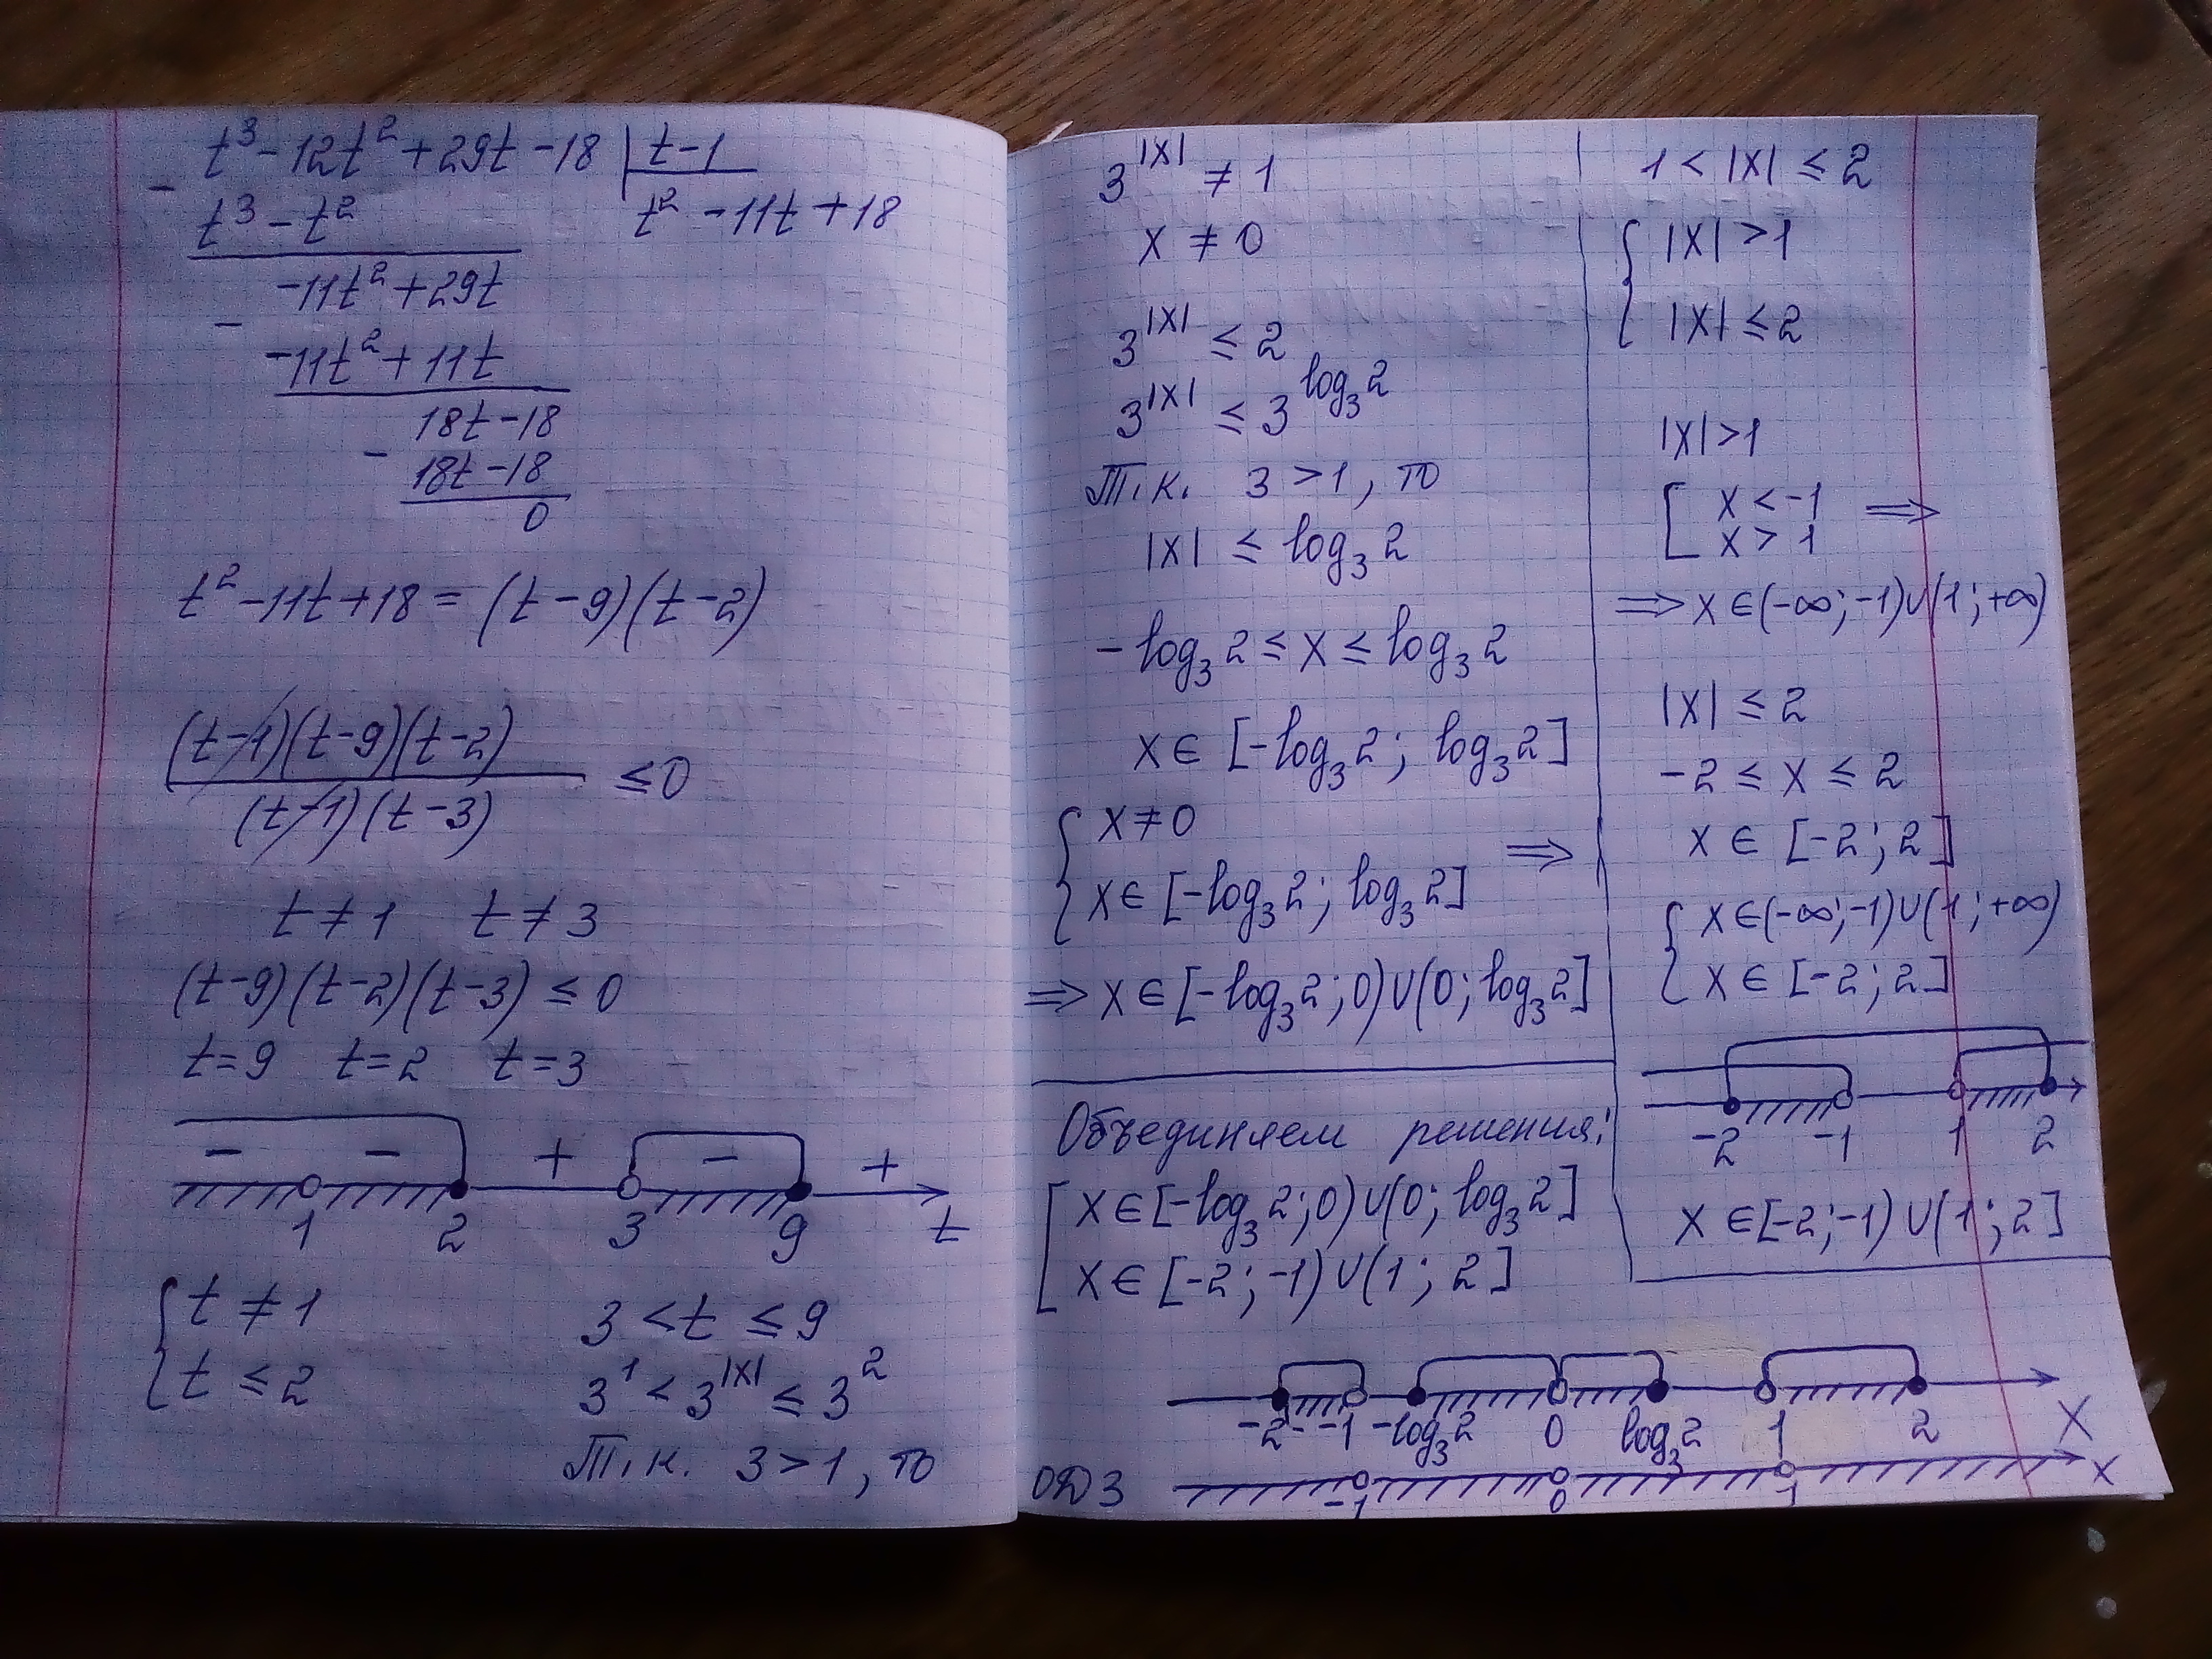 t³ - 12t² + 29t - 18 | t - 1
- t³ - t²
t² - 11t + 18
-11t² + 29t
- -11t² + 11t
18t - 18
- 18t - 18
0
t² - 11t + 18 = (t - 9)(t - 2)
(t-1)(t-9)(t-2)
(t-1)(t-3)
≤ 0
t ≠ 1 t ≠ 3
(t-9)(t-2)(t-3) ≤ 0
t=9 t=2 t=3
- - + - +
1 2 3 9 t
{ t ≠ 1
t ≤ 2
3 < t ≤ 9
3¹ < 3^|x| ≤ 3²
Т.к. 3 > 1, то
3^|x| ≠ 1
x ≠ 0
3^|x| ≤ 2
3^|x| ≤ 3^log₃2
Т.к. 3 > 1, то
|x| ≤ log₃2
- log₃2 ≤ x ≤ log₃2
x ∈ [-log₃2; log₃2]
{ x ≠ 0
x ∈ [-log₃2; log₃2]
⇒
⇒ x ∈ [-log₃2; 0) ∪ (0; log₃2]
1 < |x| ≤ 2
{ |x| > 1
|x| ≤ 2
|x| > 1
[ x < -1
x > 1
⇒
⇒ x ∈ (-∞; -1) ∪ (1; +∞)
|x| ≤ 2
-2 ≤ x ≤ 2
x ∈ [-2; 2]
{ x ∈ (-∞; -1) ∪ (1; +∞)
x ∈ [-2; 2]
-2 -1 1 2
x ∈ [-2; -1) ∪ (1; 2]
Объединяем решения:
[ x ∈ [-log₃2; 0) ∪ (0; log₃2]
x ∈ [-2; -1) ∪ (1; 2]
-2 -1 -log₃2 0 log₃2 1 2 x
ОДЗ -1 0 1 x